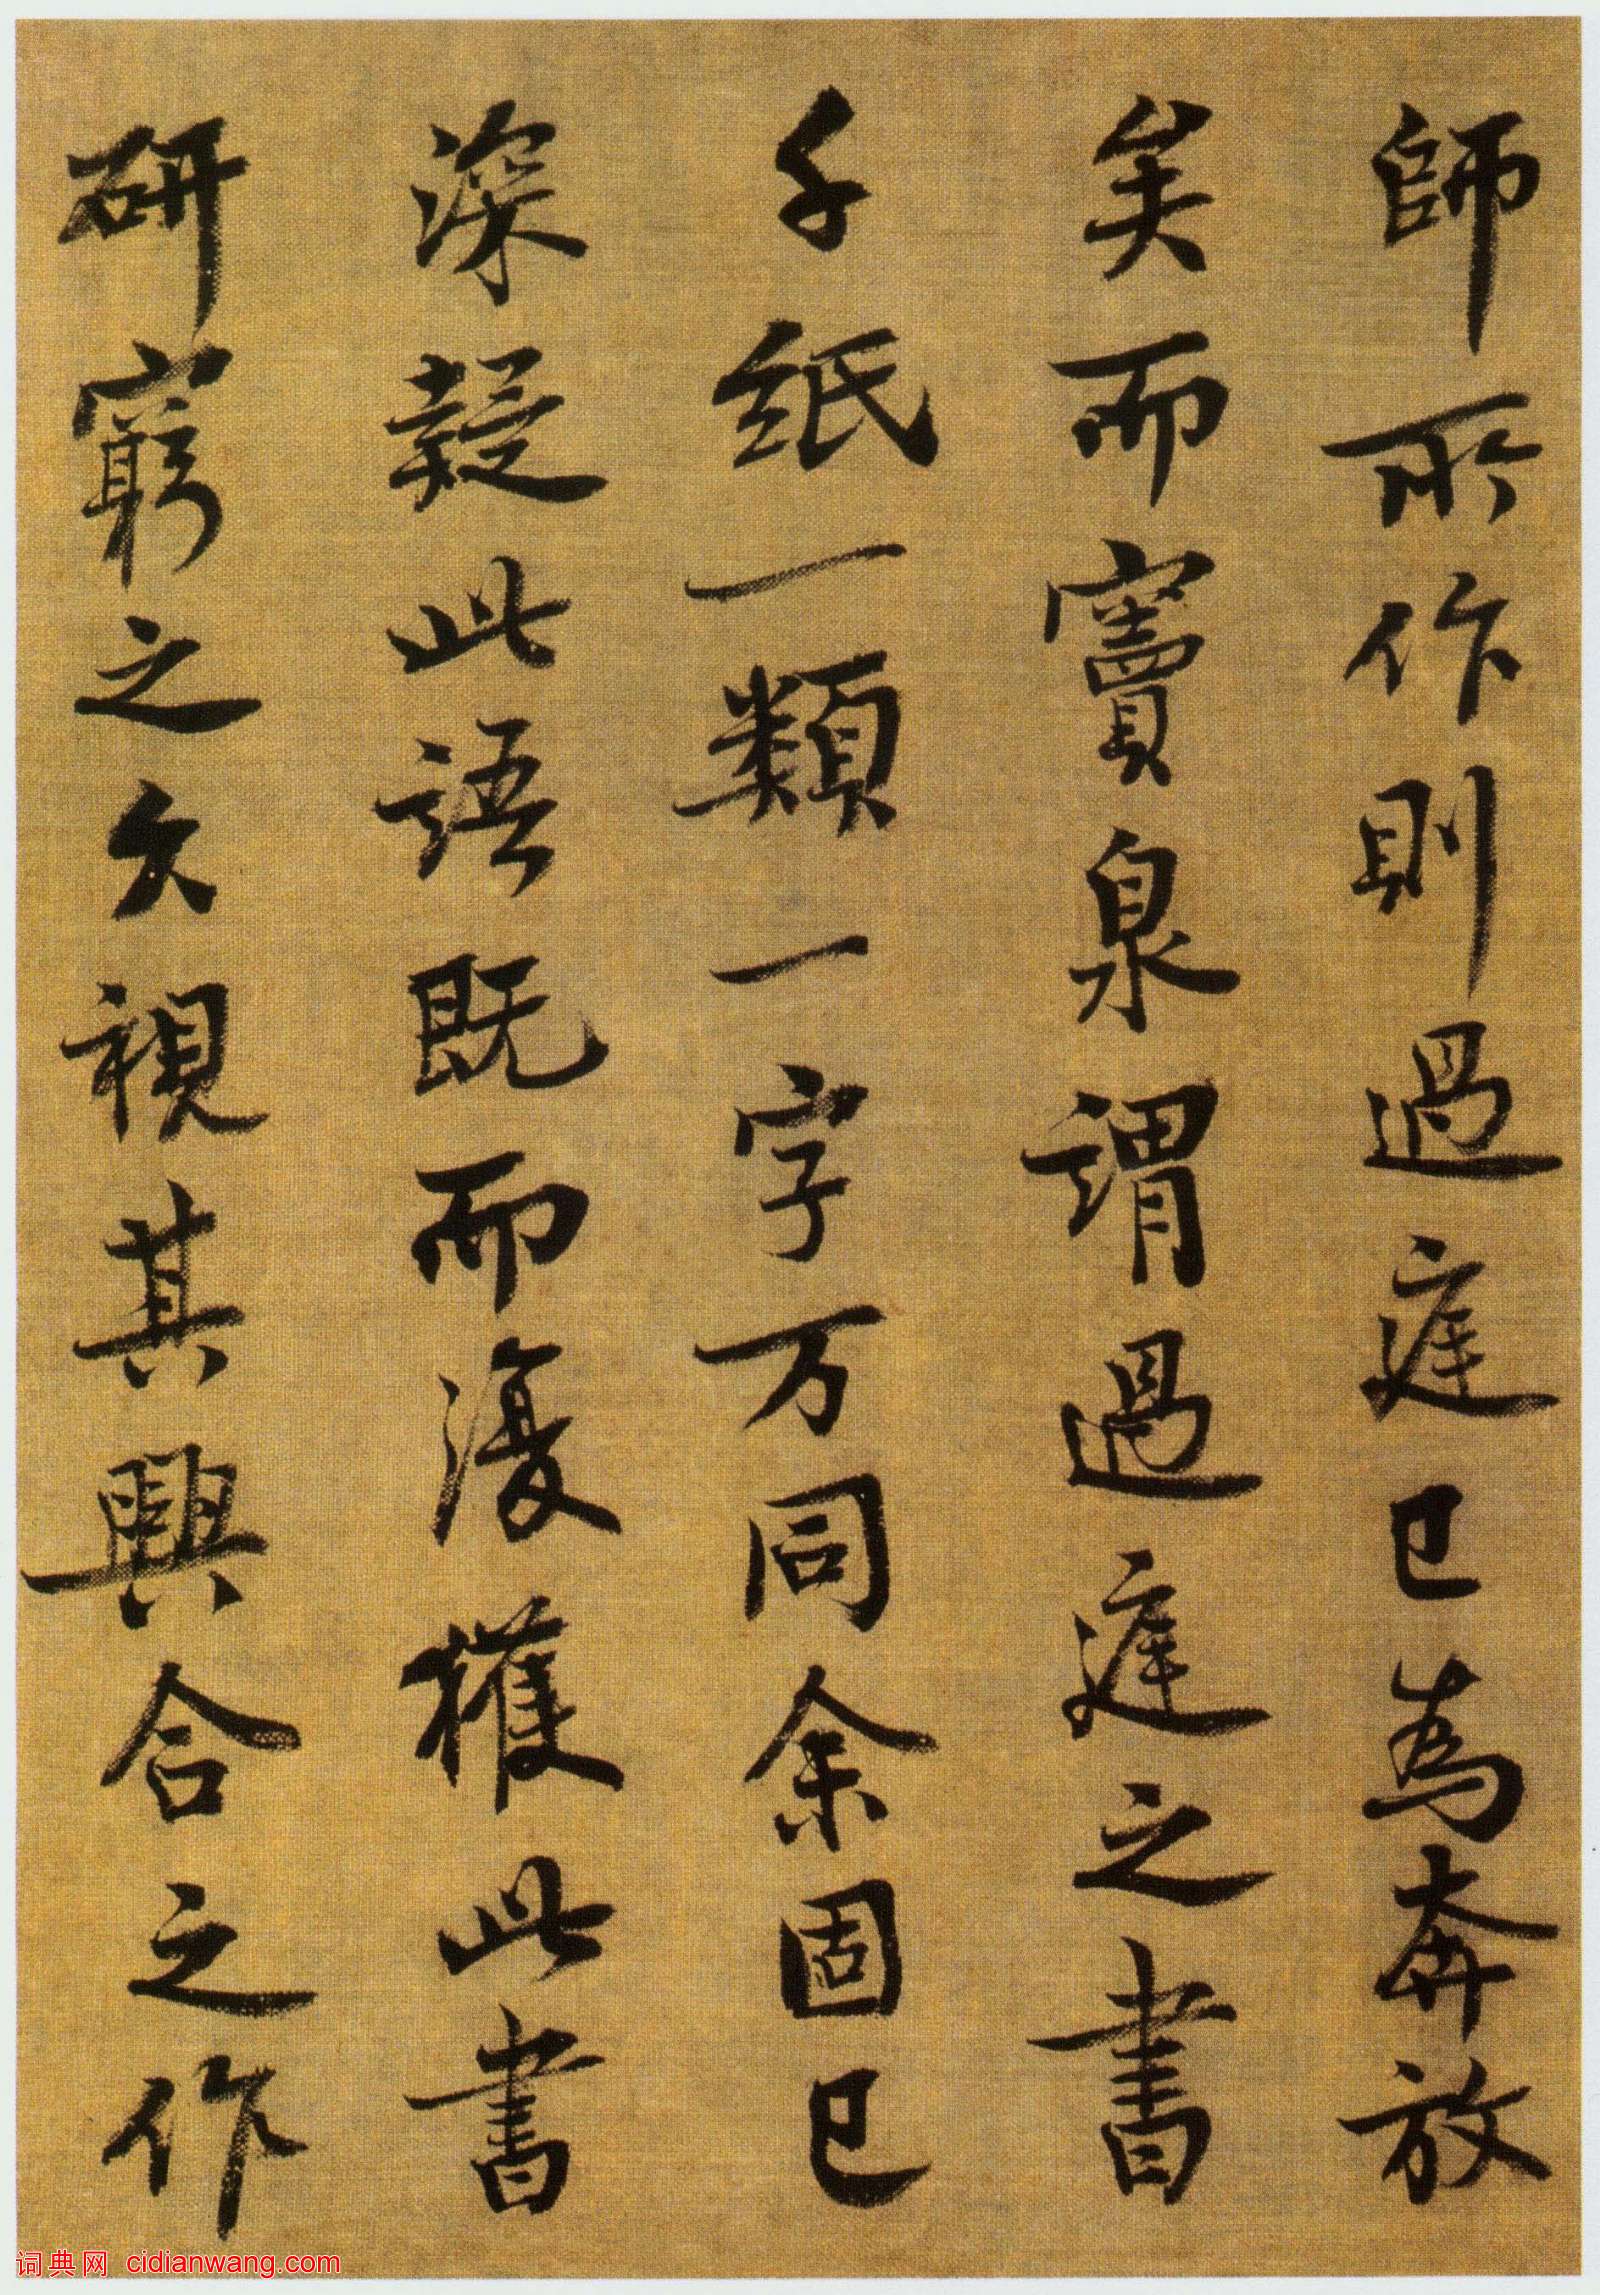 師所作則過庭已為奔放
矣而竇泉謂過庭之書
千紙一類一字万同余固已
深疑此語既而復獲此書
研窮之久視其興合之作
词典网 cidianwang.com